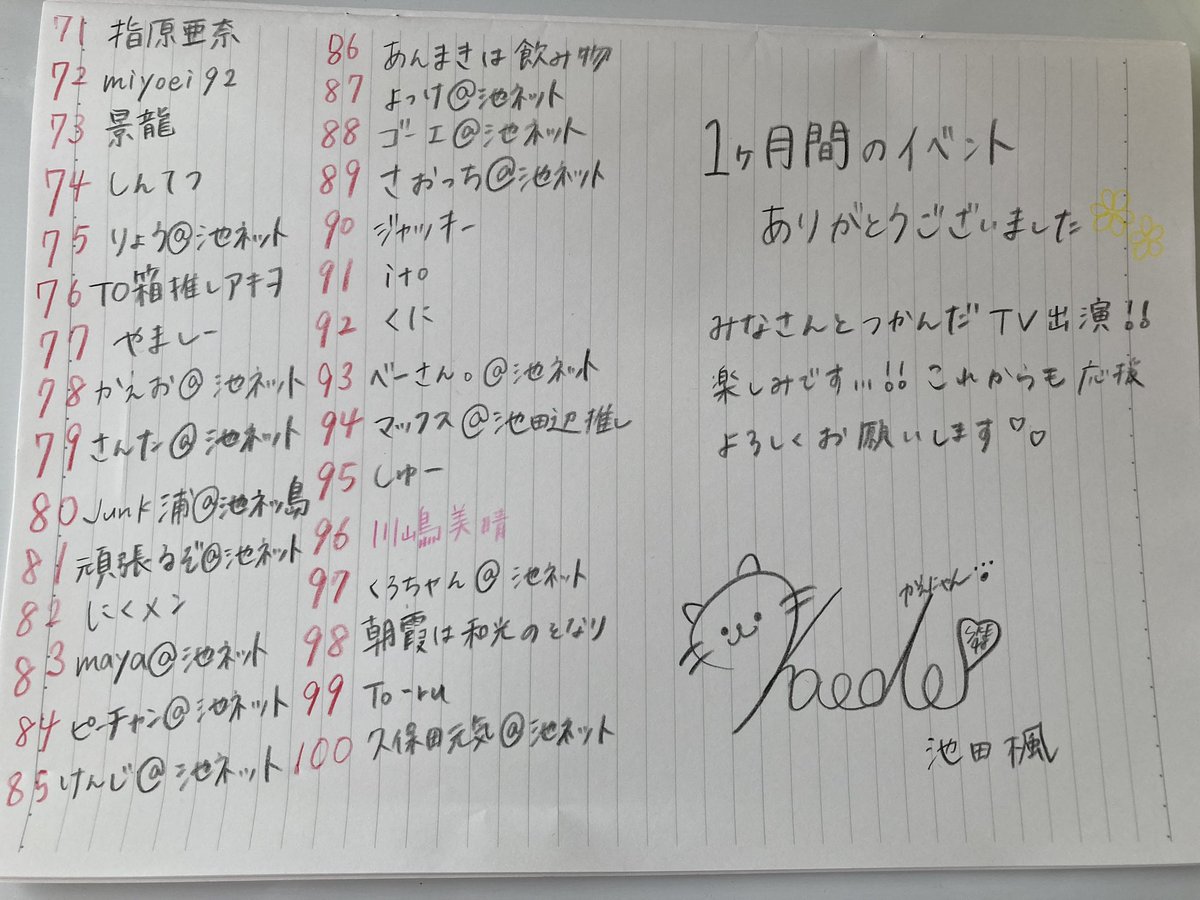 71 指原亜奈
72 miyoei92
73 景龍
74 しんてつ
75 りょう@池ネット
76 TO箱推しアキヲ
77 やましー
78 かえお@池ネット
79 さんた@池ネット
80 Junk浦@池ネッ島
81 頑張るぞ@池ネット
82 にくメン
83 maya@池ネット
84 ピーチャン@池ネット
85 けんじ@池ネット
86 あんまきは飲み物
87 よっけ@池ネット
88 ゴーエ@池ネット
89 さおっち@池ネット
90 ジャッキー
91 ito
92 くに
93 べーさん。@池ネット
94 マックス@池田辺推し
95 しゅー
96 川嶋美晴
97 くろちゃん@池ネット
98 朝霞は和光のとなり
99 To-ru
100 久保田元気@池ネット
1ヶ月間のイベント
ありがとうございました
みなさんとつかんだTV出演!!
楽しみです...!! これからも応援
よろしくお願いします♡♡
かえにゃん
池田楓